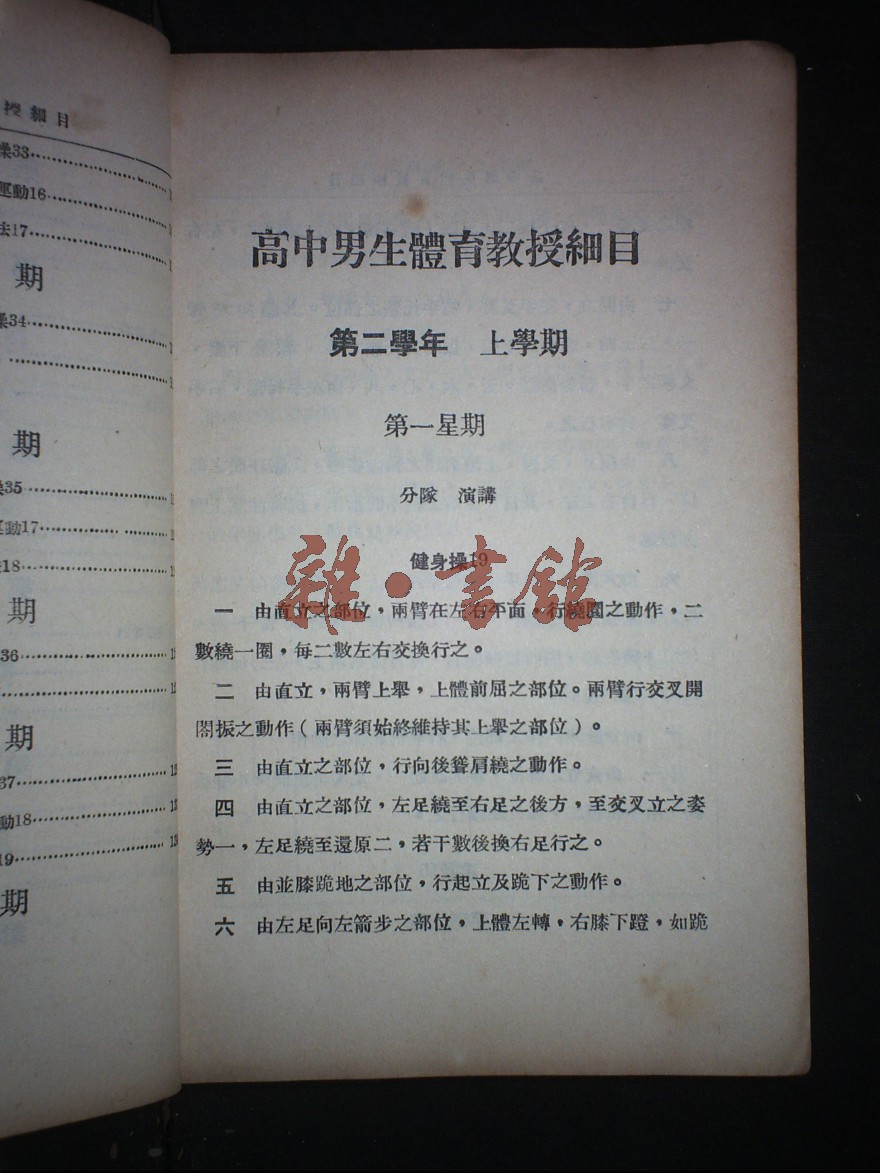 授細目
操33
運動16
法17
期
操34
期
操35
運動17
法18
期
36
期
37
動18
19
期
高中男生體育教授細目
第二學年 上學期
第一星期
分隊 演講
健身操19
雜·書館
一 由直立之部位，兩臂在左右平面，行繞圜之動作，二
數繞一圈，每二數左右交換行之。
二 由直立，兩臂上舉，上體前屈之部位。兩臂行交叉開
閤振之動作（兩臂須始終維持其上舉之部位）。
三 由直立之部位，行向後聳肩繞之動作。
四 由直立之部位，左足繞至右足之後方，至交叉立之姿
勢一，左足繞至還原二，若干數後換右足行之。
五 由並膝跪地之部位，行起立及跪下之動作。
六 由左足向左箭步之部位，上體左轉，右膝下蹬，如跪